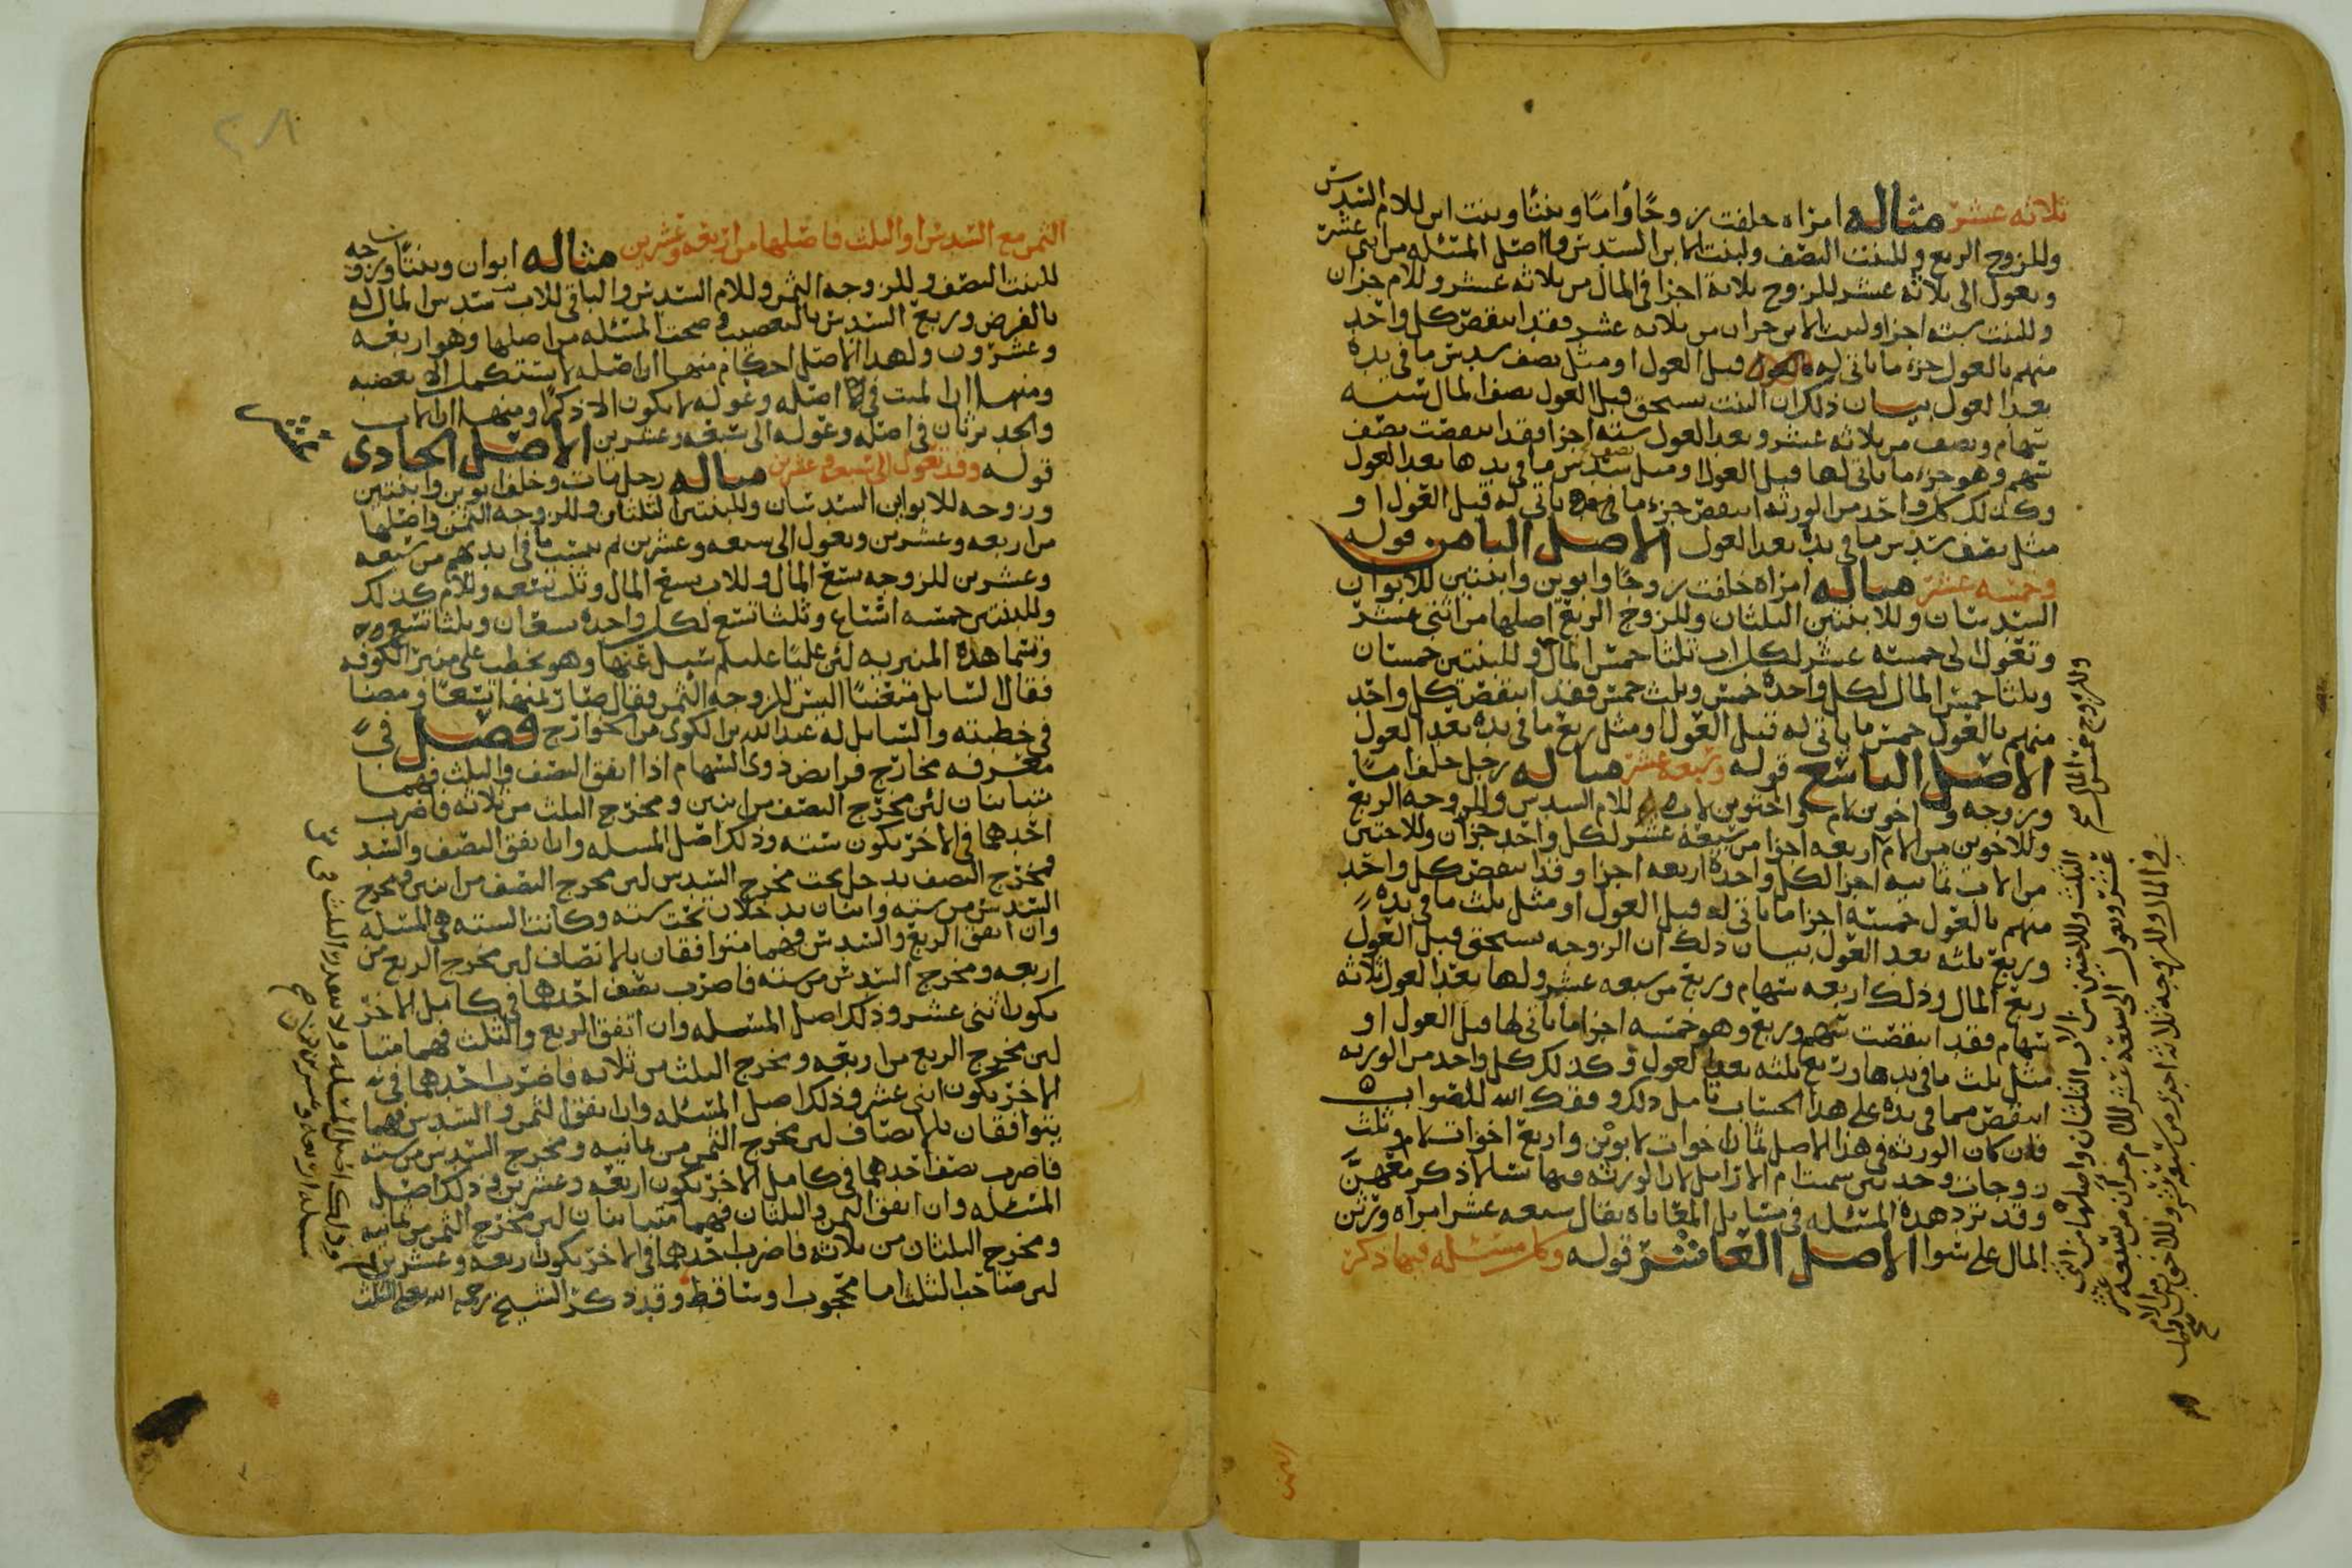 ثلاثه عشر مثاله امراه خلفت زوجًا وأمًا وبنتًا وبنت ابن للام السدس
وللزوج الربع وللبنت النصف ولبنت الابن السدس واصل المسئله من اثنى عشر
وتعول الى ثلاثه عشر للزوج ثلاثة اجزا فى المال من ثلاثه عشر وللام جزان
وللبنت سته اجزا ولبنت الابن جزان من ثلاثه عشر فقد انتقص كل واحد
منهم بالعول جزء ما ياتى له قبل العول او مثل نصف سدس ما فى يده
بعد العول بيان ذلك ان البنت تستحق قبل العول نصف المال سته
سهام ونصف من ثلاثه عشر وبعد العول سته اجزا فقد انتقصت نصف
سهم وهو جزء ما ياتى لها قبل العول او مثل نصف سدس ما فى يدها بعد العول
وكذلك كل واحد من الورثه انتقص جزء ما ياتى له قبل العول او
مثل نصف سدس ما فى يده بعد العول الاصل الثامن قوله
وخمسه عشر مثاله امراه خلفت زوجًا وابوين وابنتين للابوان
السدسان وللابنتين الثلثان وللزوج الربع اصلها من اثنى عشر
وتعول الى خمسه عشر لكل اب ثلثا خمس المال وللبنتين خمسان
وثلثا خمس المال لكل واحدة خمس وثلث خمس فقد انتقص كل واحد
منهم بالعول خمس ما ياتى له قبل العول او مثل ربع ما فى يده بعد العول
الاصل التاسع قوله وسبعه عشر مثاله رجل خلف امًا
وزوجه واخوين لام واختين لاب للام السدس وللزوجه الربع
وللاخوين من الام اربعه اجزا من سبعه عشر لكل واحد جزان وللاختين
من الاب ثمانيه اجزا لكل واحدة اربعه اجزا وقد انتقص كل واحد
منهم بالعول خمسه اجزا ما ياتى له قبل العول او مثل ثلث ما فى يده
وربع ثلثه بعد العول بيان ذلك ان الزوجه تستحق قبل العول
ربع المال وذلك اربعه سهام وربع من سبعه عشر ولها بعد العول ثلاثه
سهام فقد انتقصت سهم وربع وهو خمسه اجزا ما ياتى لها قبل العول او
مثل ثلث ما فى يدها وربع ثلثه بعد العول وكذلك كل واحد من الورثه
انتقص مما فى يده على هذا الحساب تامل ذلك وفقك الله للصواب
فان كان الورثه فى هذا الاصل ثمان اخوات لابوين واربع اخوات لام وثلث
زوجات وجدتين سميت ام الارامل لان الورثه فيها نسا لا ذكر معهن
وقد ترد هذه المسئله فى مسايل المعاياه يقال سبعه عشر امراه ورثن
المال على سوا الاصل العاشر قوله وكل مسئله فيها ذكر
وللزوج خمس المال صح
الثلث وللاختين من الاب الثلثان واصلها من اثنى
عشر وتعول الى سبعه عشر للام جزان من سبعه عشر
فى المال وللزوجه ثلاثة اجزا من سبعه عشر وللاخوين من الام
الثمن
٢٨١
الثمن مع السدس او الثلث فاصلها من اربعه وعشرين مثاله ابوان وبنتًا وزوجه
للبنت النصف وللزوجه الثمن وللام السدس والباقى للاب سدس المال له
بالفرض وربع السدس بالتعصيب وصحت المسئله من اصلها وهو اربعه
وعشرون ولهذا الاصل احكام منها ان اصله لا يستكمل الا بعصبه
ومنها ان الميت فى اصله وعوله لا يكون الا ذكرًا ومنها ان الاب
والجد يرثان فى اصله وعوله الى سبعه وعشرين الاصل الحادى
عشر
قوله وقد تعول الى سبعه وعشرين مثاله رجل مات وخلف ابوين وابنتين
وزوجه للابوين السدسان وللبنتين الثلثان وللزوجه الثمن واصلها
من اربعه وعشرين وتعول الى سبعه وعشرين ثم تنسب ما فى ايديهم من سبعه
وعشرين للزوجه تسع المال وللاب تسع المال وثلث تسعه وللام كذلك
وللبنتين خمسه اتساع وثلثا تسع لكل واحدة تسعان وثلثا تسع
وتسما هذه المنبريه لئن عليًا عليلم سيل عنها وهو يخطب على منبر الكوفه
فقال السايل متعنتًا اليس للزوجه الثمن فقال صار ثمنها تسعًا ومضا
فى خطبته والسايل له عبد الله بن الكوى من الخوارج فصل فى
معرفه مخارج فرايض ذوى السهام اذا اتفق النصف والثلث فهما
متباينان لئن مخرج النصف من اثنين ومخرج الثلث من ثلاثه فاضرب
احدهما فى الاخر يكون سته وذلك اصل المسله وان اتفق النصف والسدس
فمخرج النصف يدخل تحت مخرج السدس لين مخرج النصف من اثنين ومخرج
السدس من سته واثنان يدخلان تحت سته وكانت السته هى المسئله
وان اتفق الربع والسدس فهما متوافقان بالانصاف لين مخرج الربع من
اربعه ومخرج السدس من سته فاضرب نصف احدهما فى كامل الاخر
يكون اثنى عشر وذلك اصل المسئله وان اتفق الربع والثلث فهما متباينان
لين مخرج الربع من اربعه ومخرج الثلث من ثلاثه فاضرب احدهما فى
الاخر يكون اثنى عشر وذلك اصل المسئله وان اتفق الثمن والسدس فهما
يتوافقان بالانصاف لين مخرج الثمن من ثمانيه ومخرج السدس من سته
فاضرب نصف احدهما فى كامل الاخر يكون اربعه وعشرين وذلك اصل
المسئله وان اتفق الثمن والثلثان فهما متباينان لين مخرج الثمن من ثمانيه
ومخرج الثلثان من ثلاثه فاضرب احدهما فى الاخر يكون اربعه وعشرين
لين صاحب الثلث اما محجوب او ساقط وقد ذكر الشيخ رحمه الله
وذلك اصل المسئله